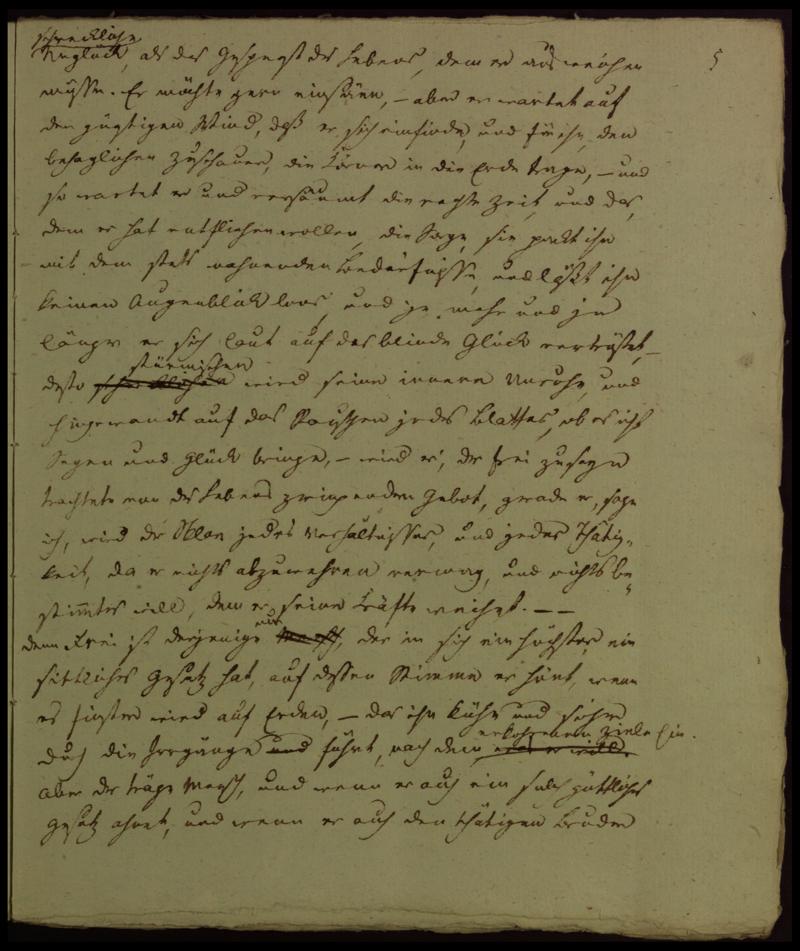 5
schreckliche
Unglück, als das Gespenst des Lebens, dem er ausweichen
müsse. Er möchte gern einsäen, – aber er wartet auf
den günstigen Wind, daß er sich einfinde, und für ihn, den
behaglichen Zuschauer, die Körner in die Erde trage, – und
so wartet er und versäumt die rechte Zeit, und das,
dem er hat entfliehen wollen, die Sorge, sie packt ihn
mit dem stets mahnenden Bedürfnisse, und läßt ihn
keinen Augenblick loos, und je mehr und je
länger er sich laut auf das blinde Glück vertröstet, –
stürmischer
desto wird seine innere Unruhe, und
hingewandt auf das Rauschen jedes Blattes, ob es ihm
Segen und Glück bringe, – wird er, der frei zu seyn
trachtete von des Lebens zwingendem Gebot, grade er, sage
ich, wird der Sklav jedes Verhältnisses, und jeder Thätig-
keit, da er nichts abzuwehren vermag, und nichts be-
stimmtes will, dem er seine Kräfte weihet. – –
nur
denn Frei ist derjenige Mensch, der in sich ein höchstes, ein
sittliches Gesetz hat, auf dessen Stimme er hört, wenn
es finster wird auf Erden, – das ihn kühn und sicher
erkohrenen Ziele hin.
durch die Irrgänge und führt, nach dem
aber der träge Mensch, und wenn er auch ein solch göttliches
Gesetz ahnet, und wenn er auch den thätigen Bruder